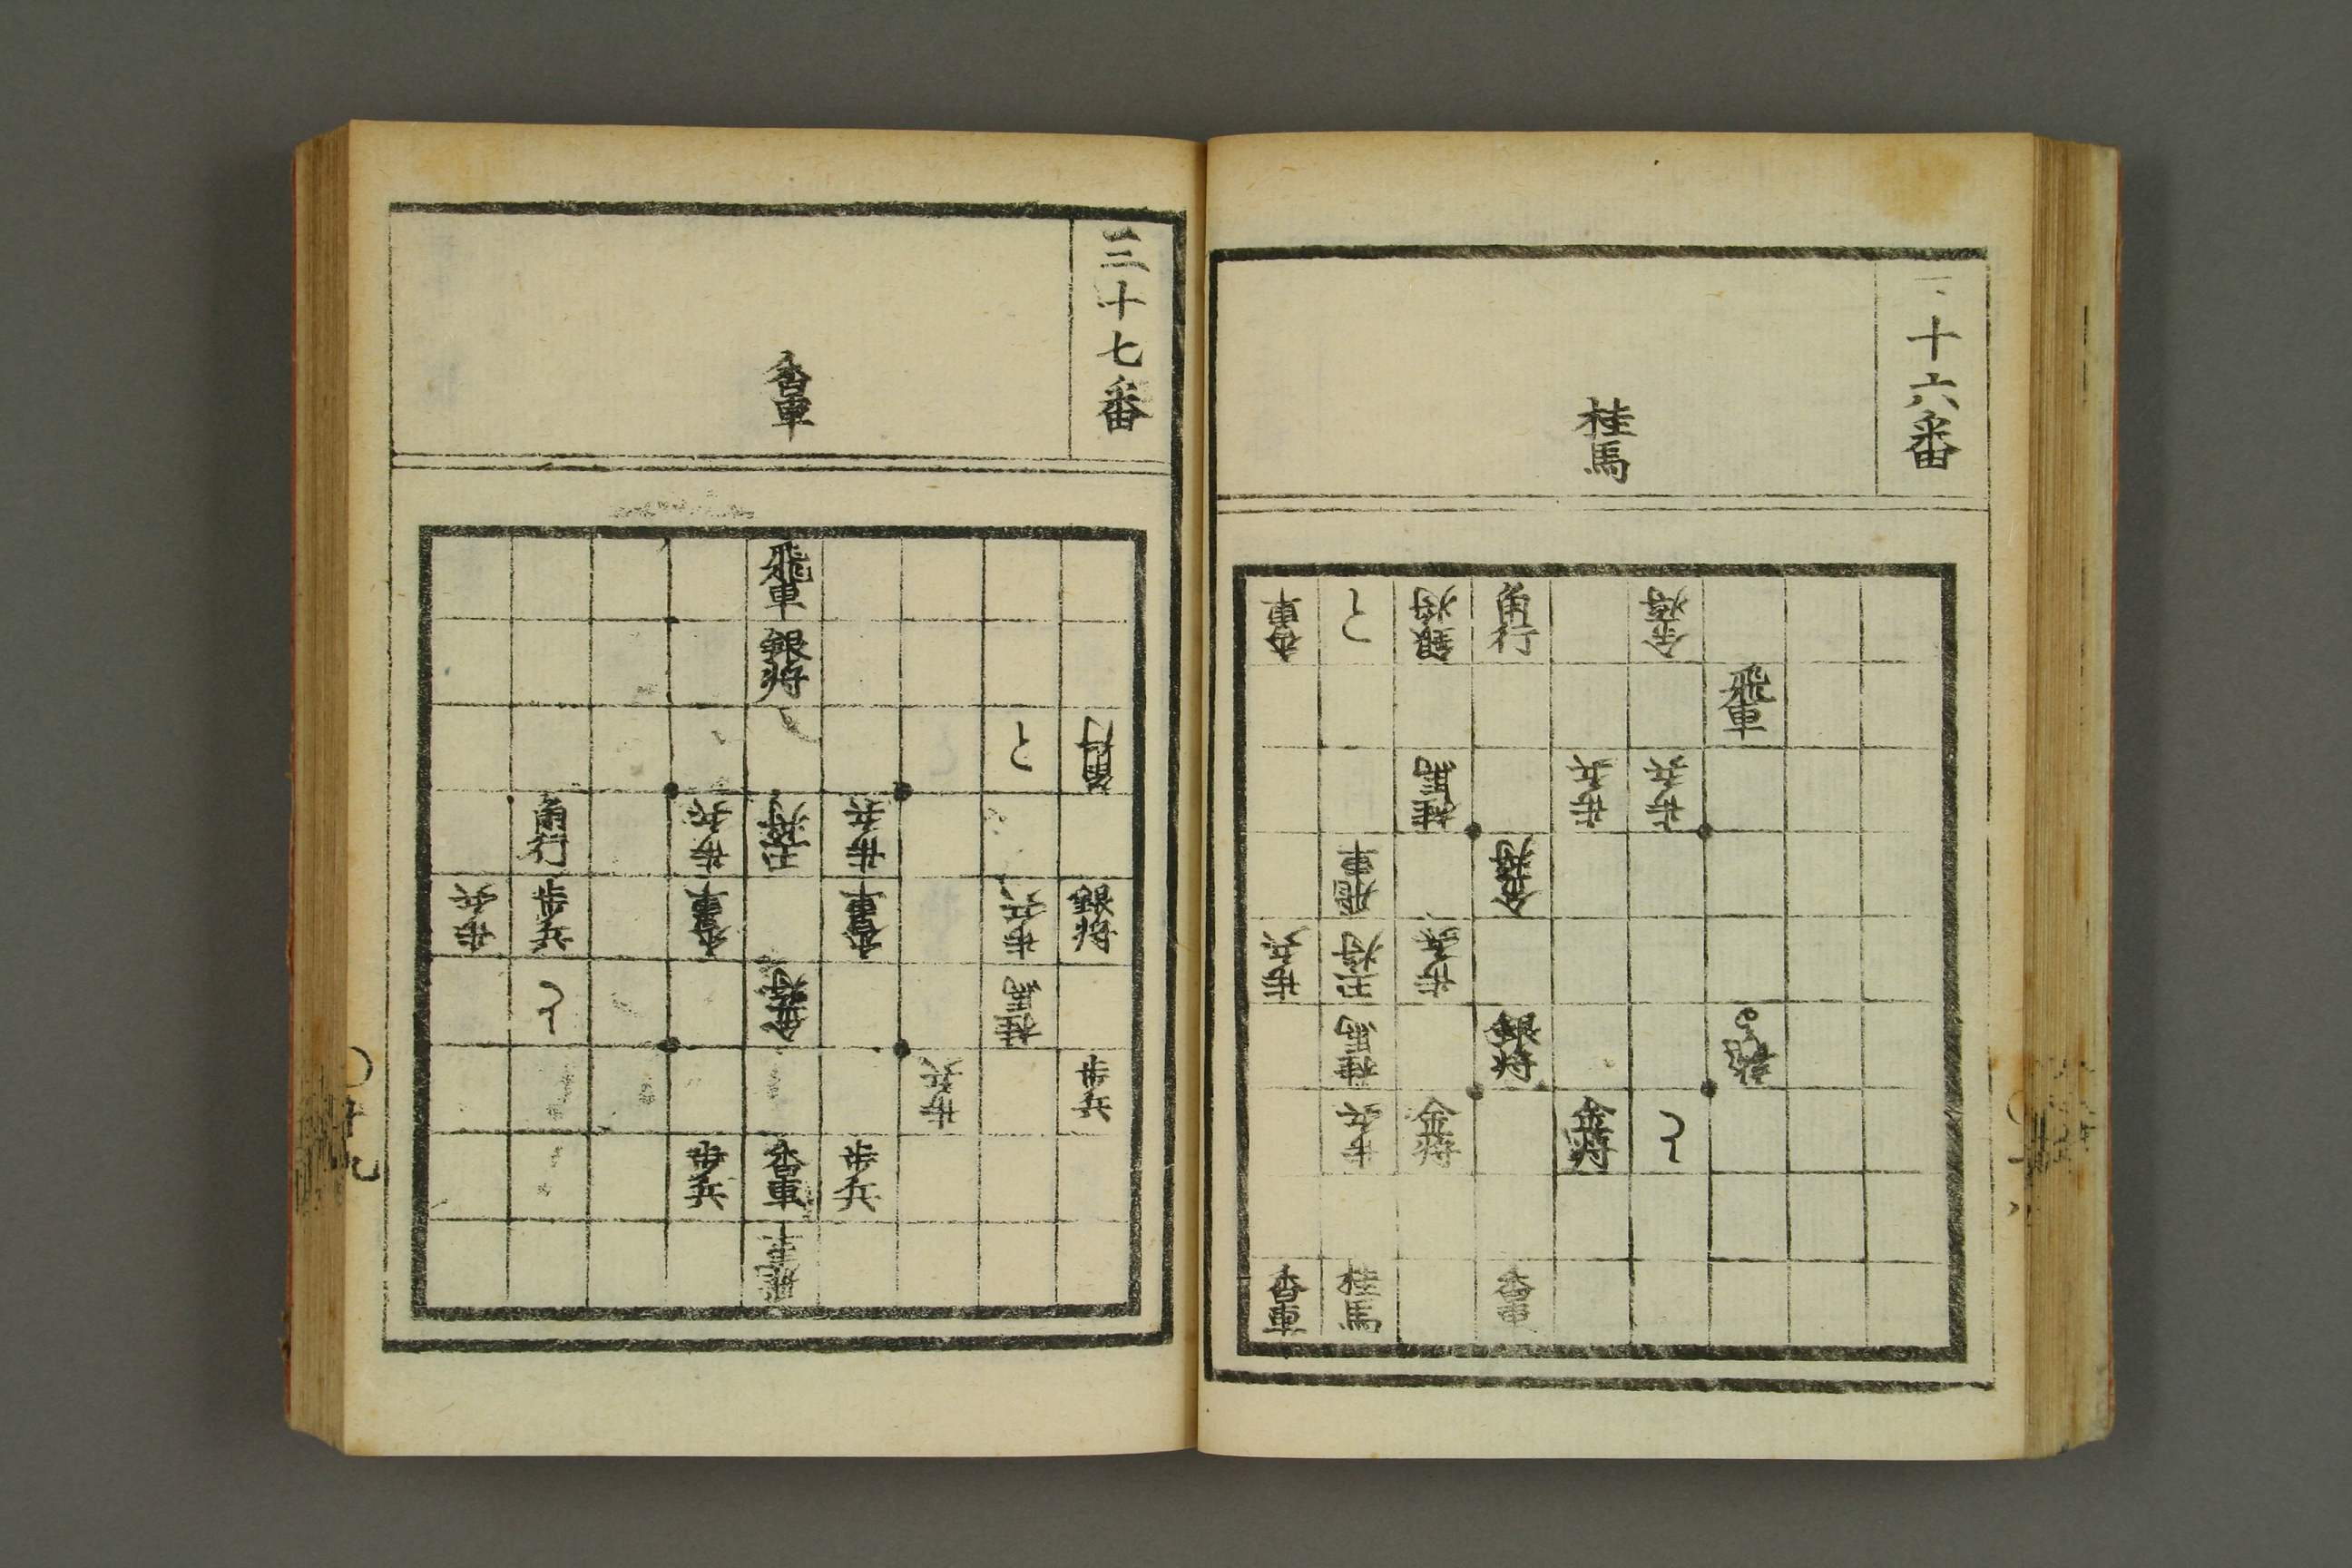 十六番
桂馬
香車 と 銀将 角行 金将
飛車
桂馬 歩兵 歩兵
飛車 金将
歩兵 玉将 歩兵
桂馬 銀将
歩兵 金将 金将 と
香車 桂馬 香車
三十七番
香車
飛車
銀将
と 角行
角行 歩兵 玉将 歩兵
歩兵 歩兵 香車 香車 歩兵 銀将
と 金将 桂馬
歩兵 歩兵
歩兵 香車 歩兵
飛車
十九